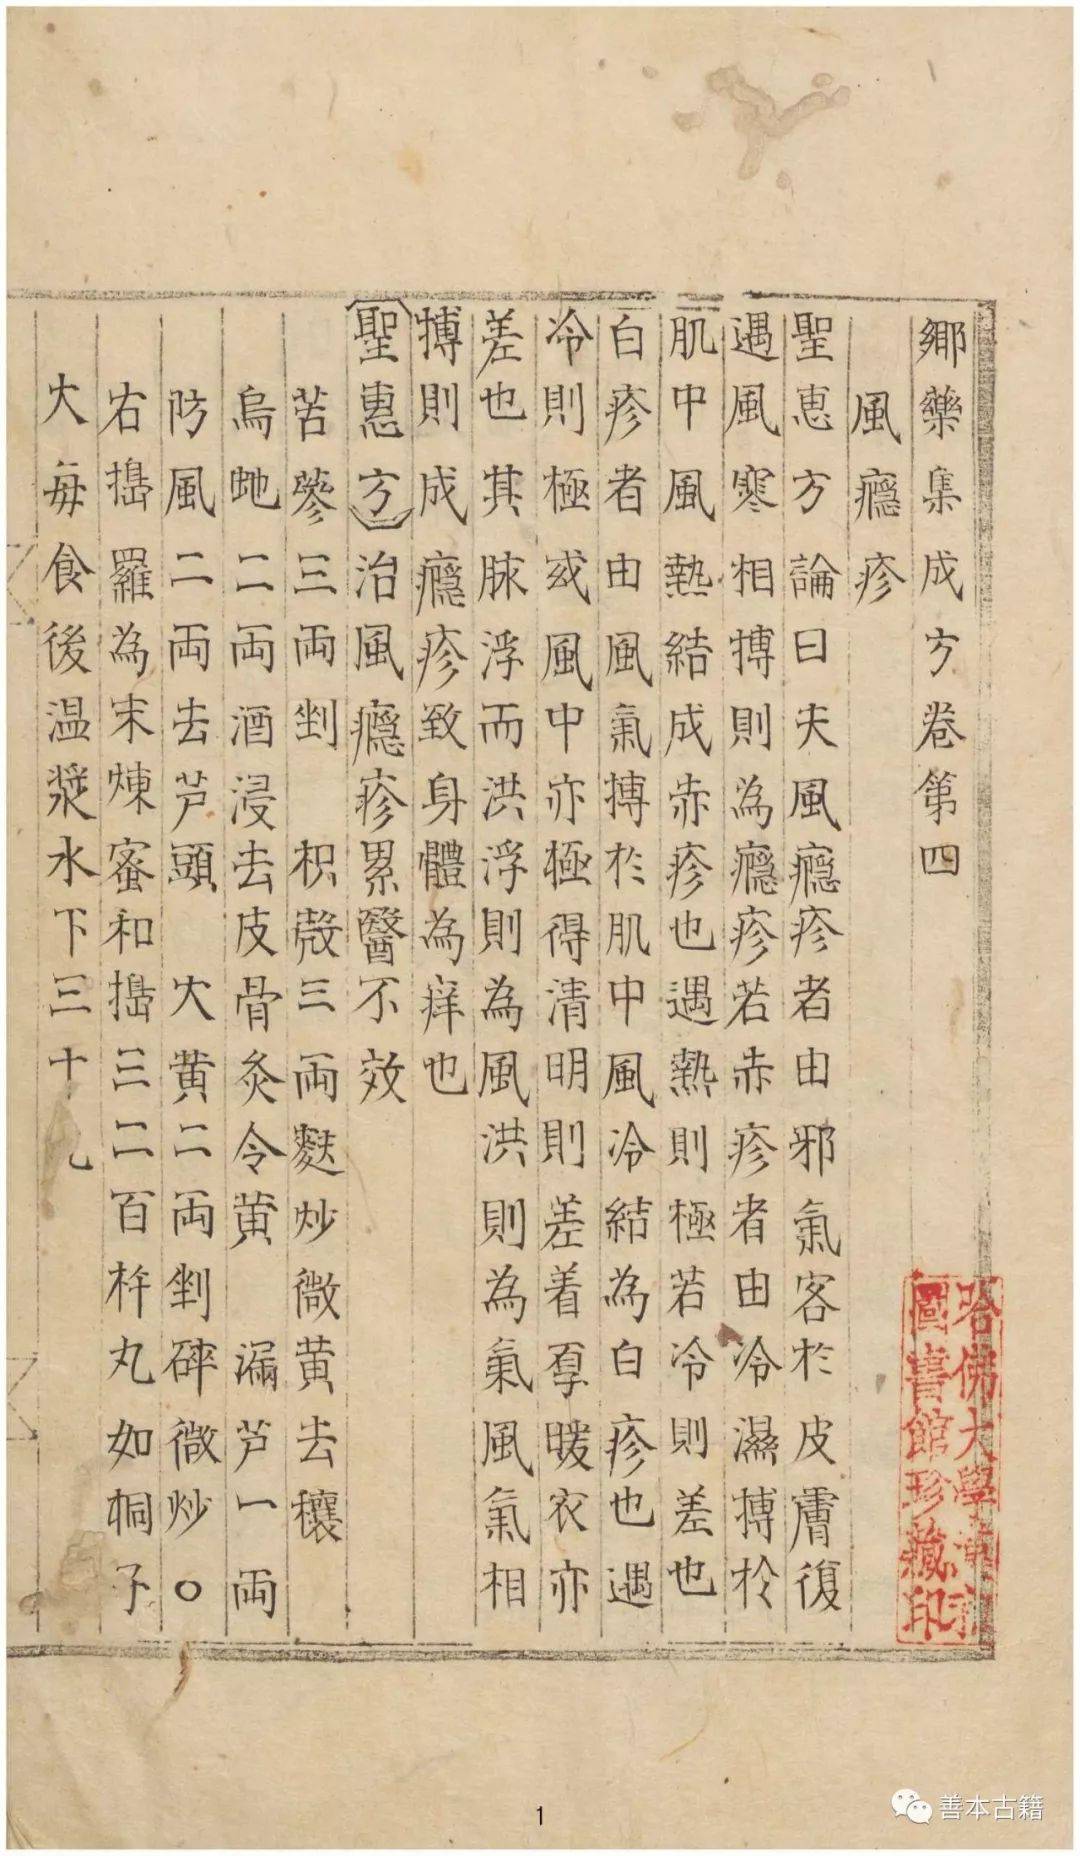 鄉藥集成方卷第四
風癮疹
聖惠方論曰夫風癮疹者由邪氣客於皮膚復
遇風寒相搏則為癮疹若赤疹者由冷濕搏於
肌中風熱結成赤疹也遇熱則極若冷則差也
白疹者由風氣搏於肌中風冷結為白疹也遇
冷則極或風中亦極得清明則差着厚暖衣亦
差也其脉浮而洪浮則為風洪則為氣風氣相
搏則成癮疹致身體為痒也
聖惠方治風癮疹累醫不效
苦蔘三兩剉 枳殼三兩麩炒微黄去穰
烏虵二兩酒浸去皮骨炙令黄 漏芦一兩
防風二兩去芦頭 大黄二兩剉碎微炒○
右搗羅為末煉蜜和搗三二百杵丸如桐子
大每食後温漿水下三十丸
哈佛大學漢和
圖書館珍藏印
1
善本古籍